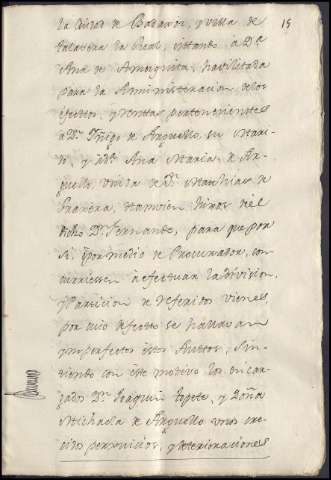 15
la Ciudad de Badajoz, y villa de
talavera la Real, citando à D.ª
Ana de Amezquita, havilitada
para la Administracion de los
efectos, y Rentas pertenecientes
à D.n Yñigo de Arguello, su Mari-
do, y à D.ª Ana Maria de Ar-
guello, viuda de D.n Mathias de
tamvien hijos del
dicho D.n Fernando, para que por
si, ò por medio de Procurador, con-
curriessen à efectuar la division,
y Particion de referidos vienes,
por cuio defecto se hallavan
ymperfectos estos Auttos; Sin-
tiendo con este motivo los encar-
gado D.n Joaquin tapete, y Doña
Michaela de Arguello unos cre-
cidos perjuicios, y deterioraciones